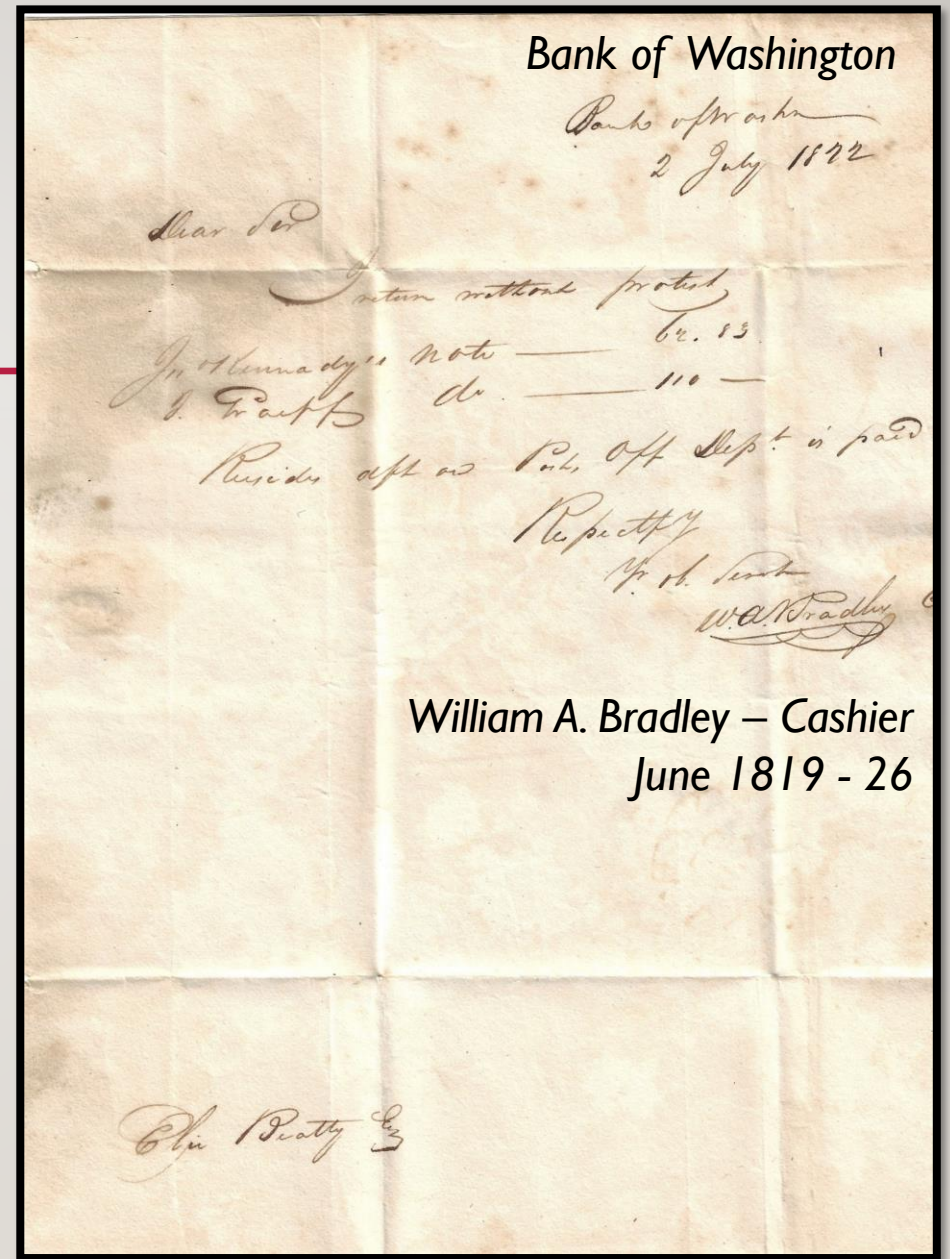 Bank of Washington
Bank of Washn
2 July 1822
Dear Sir
I return without protest
Jno Kennady's Note — 62.83
J. do. — 110 —
dft on Post Off Dept. is paid
Respectfy
Yr ob. Servt
W.A. Bradley C
William A. Bradley – Cashier
June 1819 - 26
Elie Beatty Esq